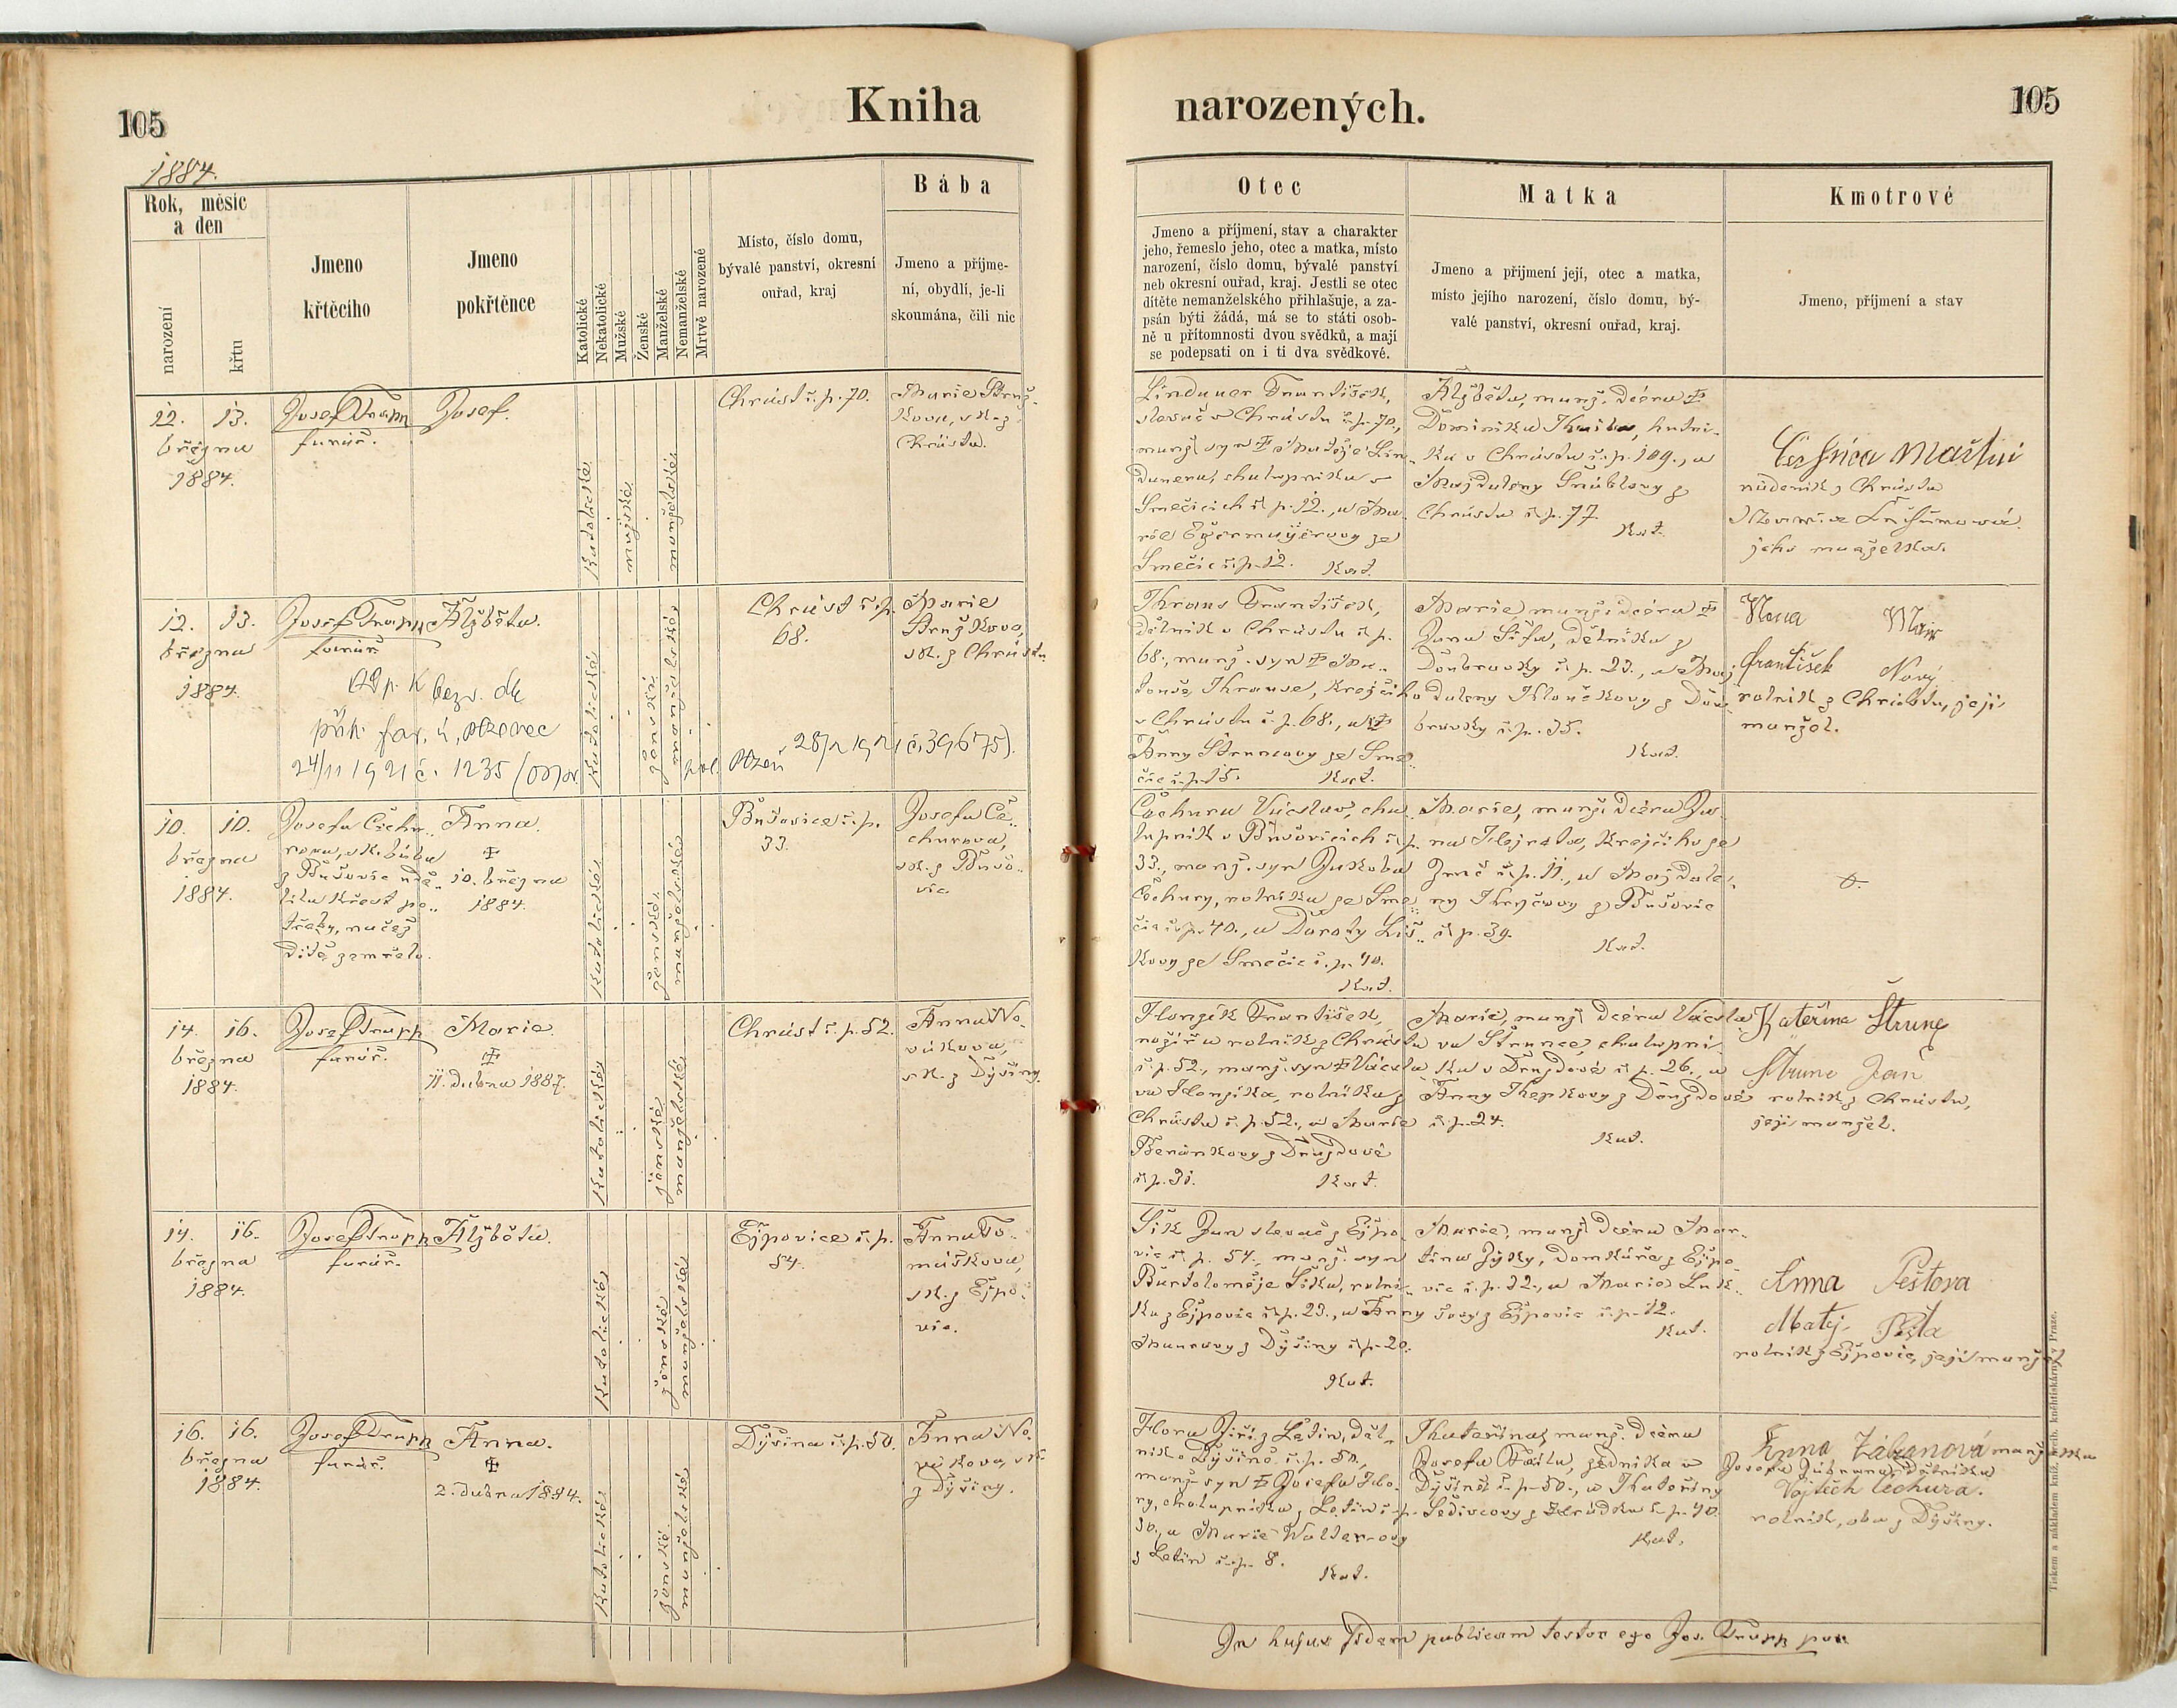 105
Kniha
narozených.
105
1884.
Rok, měsíc
a den
narození
křtu
Jmeno
křtěcího
Jmeno
pokřtěnce
Katolické
Nekatolické
Mužské
Ženské
Manželské
Nemanželské
Mrtvě narozené
Místo, číslo domu,
bývalé panství, okresní
ouřad, kraj
Bába
Jmeno a příjme-
ní, obydlí, je-li
skoumána, čili nic
Otec
Jmeno a příjmení, stav a charakter
jeho, řemeslo jeho, otec a matka, místo
narození, číslo domu, bývalé panství
neb okresní ouřad, kraj. Jestli se otec
dítěte nemanželského přihlašuje, a za-
psán býti žádá, má se to státi osob-
ně u přítomnosti dvou svědků, a mají
se podepsati on i ti dva svědkové.
Matka
Jmeno a přijmení její, otec a matka,
místo jejího narození, číslo domu, bý-
valé panství, okresní ouřad, kraj.
Kmotrové
Jmeno, příjmení a stav
12. 13.
března
1884.
Josef Trapp
farář.
Josef.
Katolické
mužské
manželské
Chrást č. p. 70.
Marie Strnž-
kova, zk. z
Chrástu.
Lindauer František,
slevač v Chrástu č. p. 70.,
manž. syn † Matěje Lin-
dauera, chalupníka v
Smečicích č. p. 12., a Ma-
rie
Smečic č. p. 12. Kat.
Alžběta, manž. dcera †
Dominika, hutní-
ka v Chrástu č. p. 109., a
Magdaleny z
Chrástu č. p. 77.
Kat.
Martin
z Chrástu
jeho manželka.
12. 13.
března
1884.
Josef Trapp
farář
Alžběta.
bezv. dle
příp. far. ú. Plzenec
24/11 1921 č. 1235
Plzeň 28/2 1921 č. 39675).
Katolické
ženské
manželské
Chrást č. p.
68.
Marie
Strnžkova,
zk. z Chrástu.
František,
dělník v Chrástu č. p.
68., manž. syn † Ma-
touše, krejčího
v Chrástu č. p. 68., a †
Anny Štruncovy ze Sme-
čic č. p. 15. Kat.
Marie, manž. dcera †
Jana Šífa, dělníka z
Doubravky č. p. 23., a Mag-
daleny Kloučkovy z Dou-
bravky č. p. 35.
Kat.
František Nový
rolník z Chrástu, její
manžel.
10. 10.
března
1884.
Josefa Čechu-
rova, zk. bába
z Bušovic udě-
lila křest po-
třeby, načež
dítě zemřelo.
Anna.
†
10. března
1884.
Katolické
ženské
manželské
Bušovice č. p.
33.
Josefa Če-
churova,
zk. z Bušo-
vic
Čechura Václav, cha-
lupník v Bušovicích č. p.
33., manž. syn Jakoba
Čechury, rolníka ze Sme-
čic č. p. 40., a Doroty Liš-
kovy ze Smečic č. p. 40.
Kat.
Marie, manž. dcera Ja-
na, krejčího ze
č. p. 11., a Magdale-
ny z Bušovic
č. p. 39.
Kat.
14. 16.
března
1884.
Josef Trapp
farář.
Marie.
†
11. dubna 1887.
Katolické
ženské
manželské
Chrást č. p. 52.
Anna No-
vákova,
zk. z Dýšiny.
Honzík František,
nožíř a rolník z Chrástu
č. p. 52., manž. syn † Václa-
va Honzíka, rolníka z
Chrástu č. p. 52., a Marie
Beránkovy z Druzdové
č. p. 31. Kat.
Marie, manž. dcera Václa-
va Štrunce, chalupní-
ka v Druzdové č. p. 26., a
Anny z Druzdové
č. p. 24.
Kat.
Kateřina Štrunc
Štrunc Jan
rolník z Chrástu,
její manžel.
14. 16.
března
1884.
Josef Trapp
farář.
Alžběta.
Katolické
ženské
manželské
Ejpovice č. p.
54.
Anna To-
máškova,
zk. z Ejpo-
vic.
Šik Jan slevač z Ejpo-
vic č. p. 54., manž. syn
Bartoloměje Šika, rolní-
ka z Ejpovic č. p. 23., a Anny
z Dýšiny č. p. 20.
Kat.
Marie, manž. dcera Mar-
tina, domkáře z Ejpo-
vic č. p. 12., a Marie
z Ejpovic č. p. 12.
Kat.
Anna Peštova
Matěj Pešta
rolník z Ejpovic, její manžel
16. 16.
března
1884.
Josef Trapp
farář.
Anna.
†
2. dubna 1884.
Katolické
ženské
manželské
Dýšina č. p. 50.
Anna No-
vákova, zk.
z Dýšiny.
Hora Jiří z Letin, děl-
ník v Dýšině č. p. 50.,
manž. syn † Josefa Ho-
ry, chalupníka z Letin č. p.
30., a Marie Walterovy
z Letin č. p. 8.
Kat.
Kateřina, manž. dcera
Josefa, zedníka v
Dýšině č. p. 50., a Kateřiny
Šedivcovy z Hrádku č. p. 40.
Kat.
Anna Zábranová manželka
Josefa Zábrana, dělníka
Vojtěch Čechura.
rolník, oba z Dýšiny.
In hujus fidem publicam testor ego Jos. Trapp par.
Tiskem a nákladem kníž. arcib. kněhtiskárny v Praze.